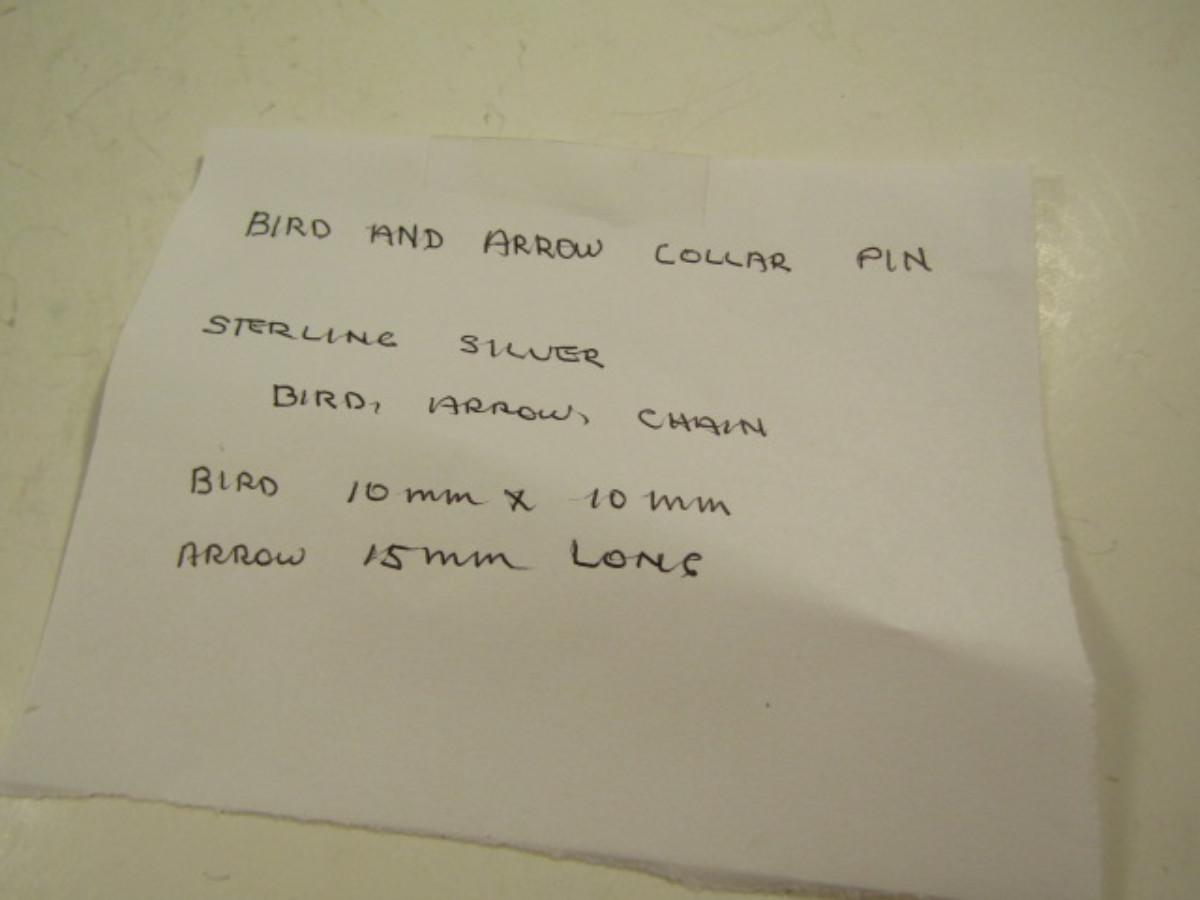 BIRD AND ARROW COLLAR PIN
STERLING SILVER
BIRD, ARROW, CHAIN
BIRD 10mm x 10mm
ARROW 15mm LONG